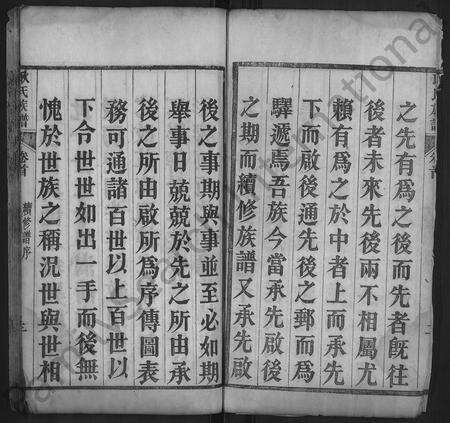 之先有爲之後而先者旣往
後者未來先後兩不相屬尤
賴有爲之於中者上而承先
下而啟後通先後之郵而爲
驛遞焉吾族今當承先啟後
之期而續修族譜又承先啟
後之事期與事並至必如期
舉事日兢兢於先之所由承
後之所由啟所爲序傳圖表
務可通諸百世以上百世以
下合世世如出一手而後無
愧於世族之稱況世與世相
氏族譜
卷首
續修譜序
三